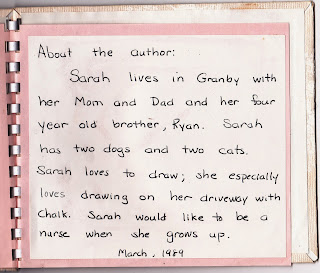 About the author:
Sarah lives in Granby with
her Mom and Dad and her four
year old brother, Ryan. Sarah
has two dogs and two cats.
Sarah loves to draw; she especially
loves drawing on her driveway with
Chalk. Sarah would like to be a
nurse when she grows up.
March, 1989